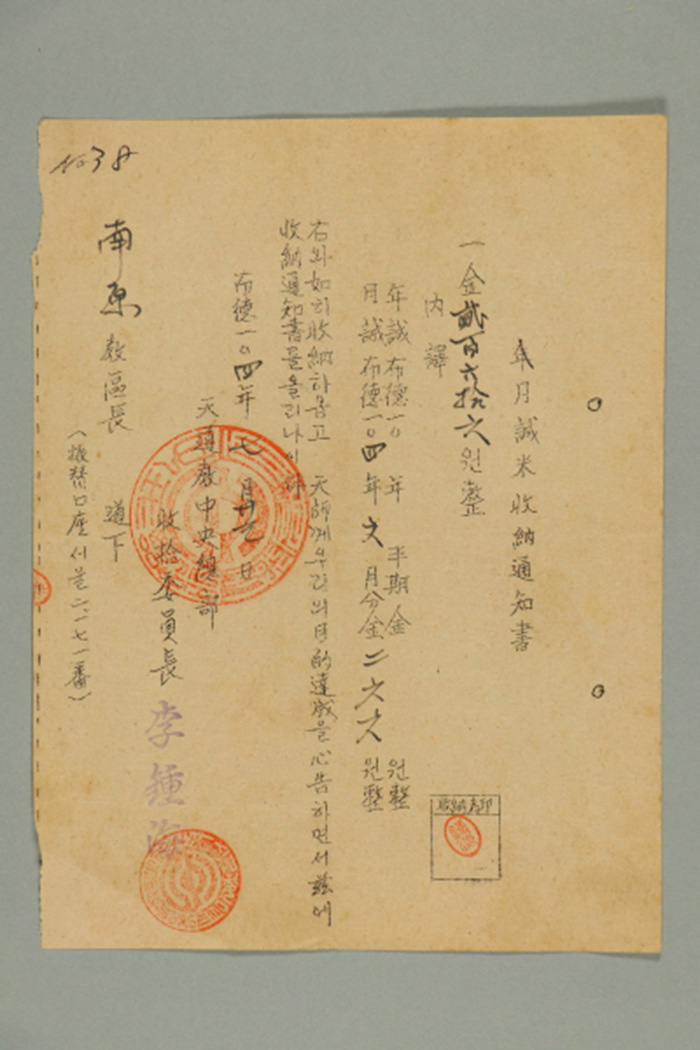 年月誠米收納通知書
一金貳百六拾六원整
內譯
年誠布德一〇 年 半期金 원整
月誠布德一〇四年六月分金二六六원整
右와如히收納하옵고 天師께우리의目的達成을心告하면서玆에
收納通知書를올리나이다
布德一〇四年七月 日
天道敎中央總部
收拾委員長 李鍾海
南原敎區長 道下
(振替口座서울二一七一番)
No 38
收納者印